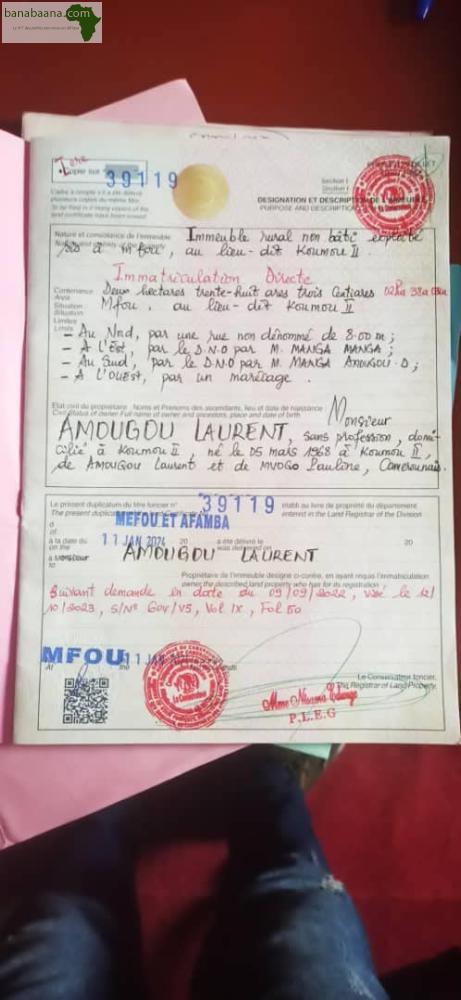 banabaana.com
1ère
Copier sur
39119
Section I
DESIGNATION ET DESCRIPTION DE L'IMMEUBLE
PURPOSE AND DESCRIPTION
Nature et consistance de l'immeuble Immeuble rural non bâti exploité
sis à Mfou, au lieu-dit Koumou II.
Immatriculation Directe
Contenance Deux hectares trente-huit ares trois Centiares 02ha 38a 03ca
Area
Situation Mfou, au lieu-dit Koumou II
Situation
Limites
Limits
- Au Nord, par une rue non dénommé de 8.00 m ;
- A l'Est, par le D.N.O par M. MANGA MANGA ;
- Au Sud, par le D.N.O par M. MANGA AMOUGOU.D ;
- A L'OUEST, par un marécage.
Etat civil du propriétaire Noms et Prenoms des ascendants, lieu et date de naissance
Civil Status of owner Full name of owner and ancestors, place and date of birth
Monsieur
AMOUGOU LAURENT, sans profession, domi-
cilié à Koumou II, né le 05 mars 1968 à Koumou II,
de AMOUGOU Laurent et de MVOGO Pauline, Camerounais.
Le présent duplicatum du titre foncier n° 39119 établi au livre de propriété du département
The present duplicatum entered in the Land Registrar of the Division
d MEFOU ET AFAMBA
of
à la date du 11 JAN 2024 20 a été délivré le 20
on the was delivered on
à Monsieur AMOUGOU LAURENT
Propriétaire de l'immeuble désigné ci-contre, en ayant requis l'immatriculation
owner the described land property who has for its registration
Suivant demande en date du 09/09/2022, visé le 12/
10/2023, S/N° 604/V5, Vol IX, Fol 50
MFOU 11 JAN
At the
Le Conservateur foncier,
The Registrar of Land Property,
Le Conservateur
Mme
P.L.E.G